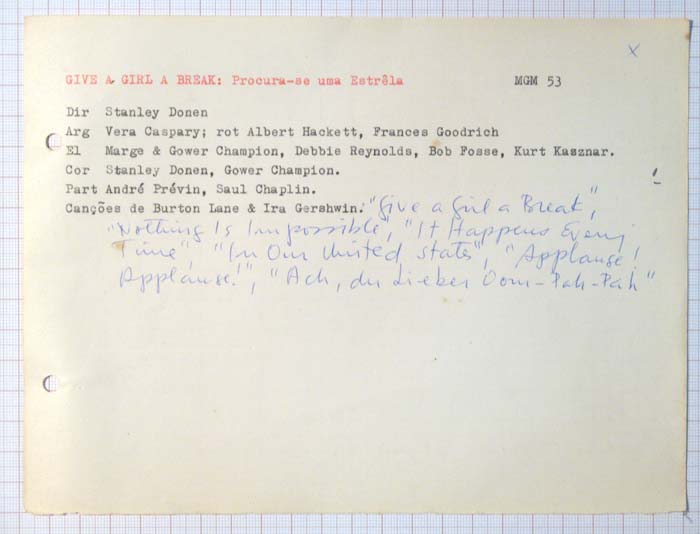 x
GIVE A GIRL A BREAK: Procura-se uma Estrêla MGM 53
Dir Stanley Donen
Arg Vera Caspary; rot Albert Hackett, Frances Goodrich
El Marge & Gower Champion, Debbie Reynolds, Bob Fosse, Kurt Kasznar.
Cor Stanley Donen, Gower Champion.
Part André Prévin, Saul Chaplin.
Canções de Burton Lane & Ira Gershwin: "Give a Girl a Break",
"Nothing Is Impossible", "It Happens Every
Time", "In Our United States", "Applause!
Applause!", "Ach, du Lieber Oom-Pah-Pah"